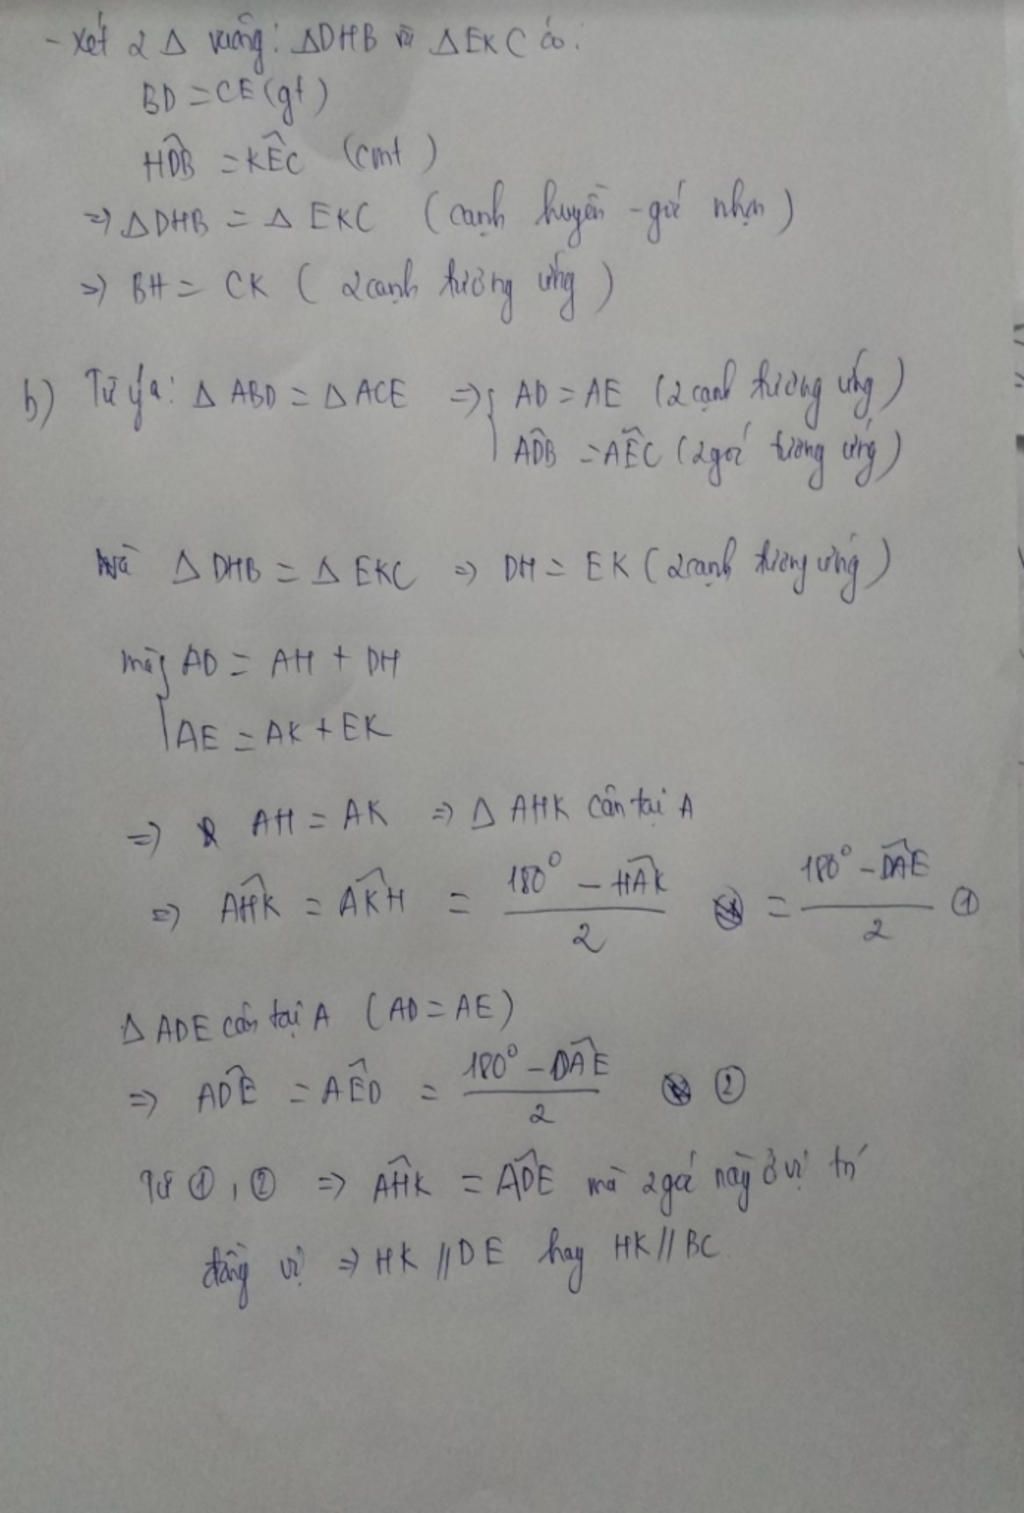 - Xét 2 Δ vuông: ΔDHB và ΔEKC có:
BD = CE (gt)
HD̂B = KÊC (cmt)
=> ΔDHB = Δ EKC (cạnh huyền - góc nhọn)
=> BH = CK (2 cạnh tương ứng)
b) Từ ý a: Δ ABD = Δ ACE => { AD = AE (2 cạnh tương ứng)
AD̂B = AÊC (2 góc tương ứng)
và Δ DHB = Δ EKC => DH = EK (2 cạnh tương ứng)
mà { AD = AH + DH
AE = AK + EK
=> AH = AK => Δ AHK cân tại A
=> AĤK = AK̂H = (180° - HÂK)/2 = (180° - DÂE)/2 ①
Δ ADE cân tại A (AD = AE)
=> AD̂E = AÊD = (180° - DÂE)/2 ②
Từ ①, ② => AĤK = AD̂E mà 2 góc này ở vị trí
đồng vị => HK // DE hay HK // BC.